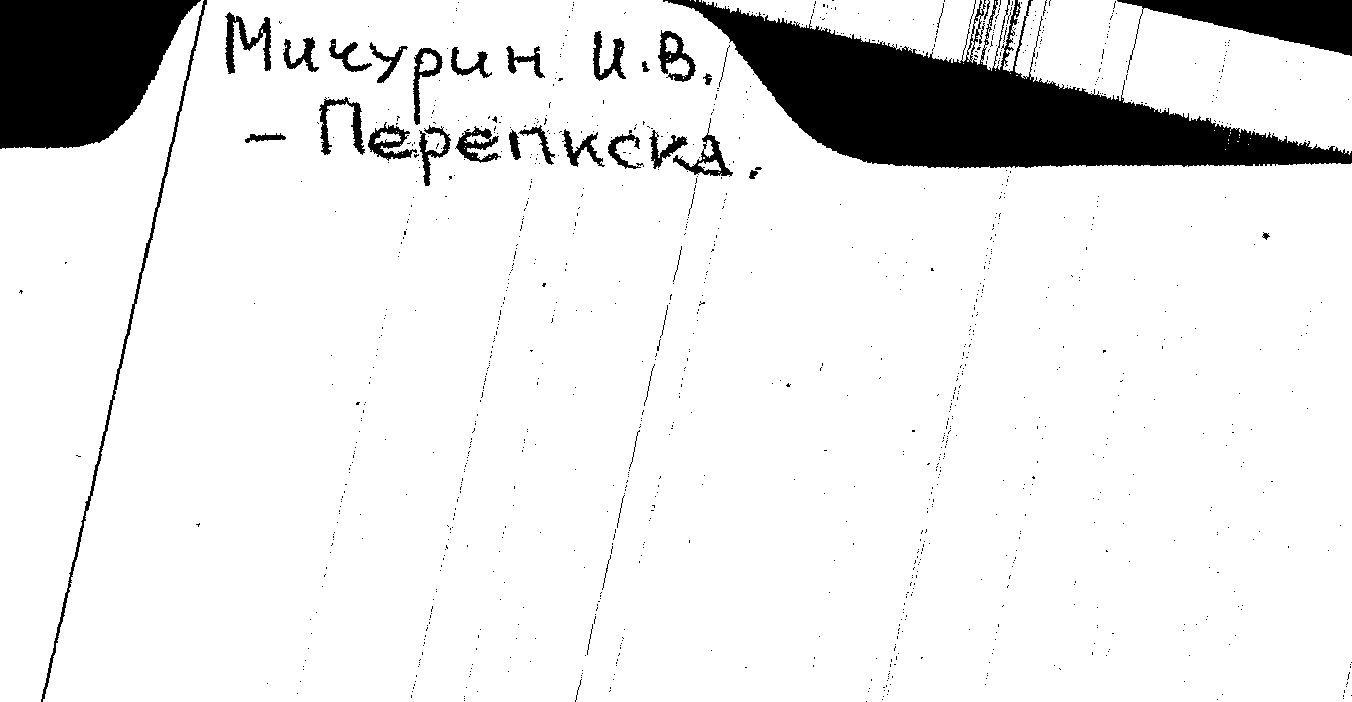 Мичурин И.В.
- Перепкска.